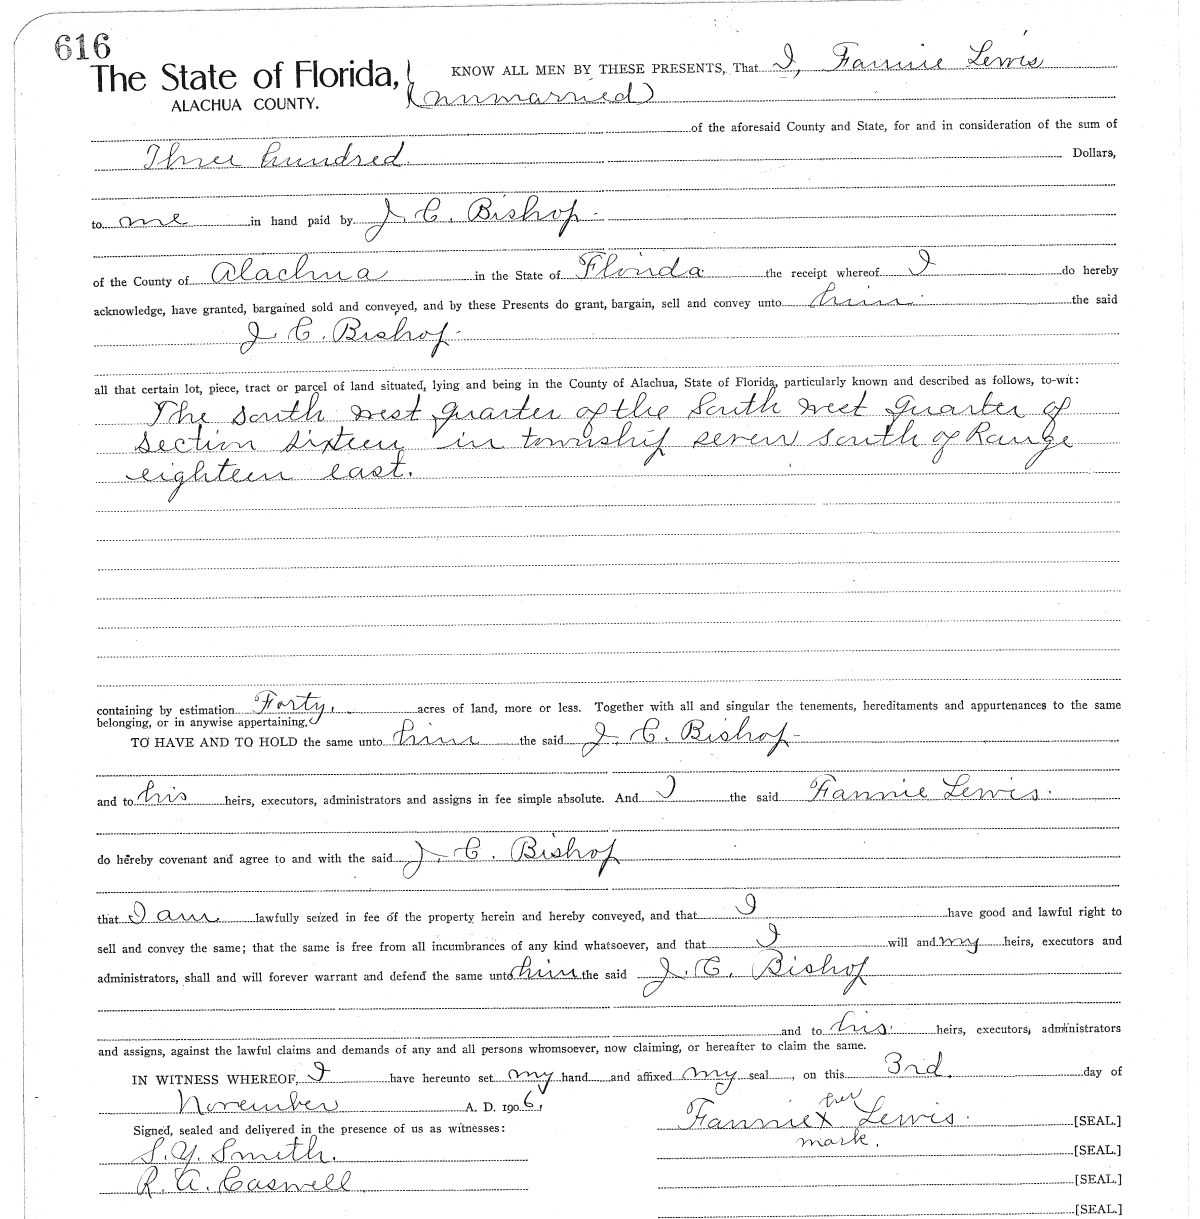 616
The State of Florida,
ALACHUA COUNTY.
KNOW ALL MEN BY THESE PRESENTS, That I, Fannie Lewis
(unmarried)
of the aforesaid County and State, for and in consideration of the sum of
Three hundred Dollars,
to me in hand paid by J. C. Bishop
of the County of Alachua in the State of Florida the receipt whereof I do hereby
acknowledge, have granted, bargained sold and conveyed, and by these Presents do grant, bargain, sell and convey unto him the said
J. C. Bishop
all that certain lot, piece, tract or parcel of land situated, lying and being in the County of Alachua, State of Florida, particularly known and described as follows, to-wit:
The South west quarter of the South west quarter of
Section sixteen in township seven south of Range
eighteen east.
containing by estimation Forty, acres of land, more or less. Together with all and singular the tenements, hereditaments and appurtenances to the same
belonging, or in anywise appertaining.
TO HAVE AND TO HOLD the same unto him the said J. C. Bishop
and to his heirs, executors, administrators and assigns in fee simple absolute. And I the said Fannie Lewis.
do hereby covenant and agree to and with the said J. C. Bishop
that I am lawfully seized in fee of the property herein and hereby conveyed, and that I have good and lawful right to
sell and convey the same; that the same is free from all incumbrances of any kind whatsoever, and that I will and my heirs, executors and
administrators, shall and will forever warrant and defend the same unto him the said J. C. Bishop
and to his heirs, executors, administrators
and assigns, against the lawful claims and demands of any and all persons whomsoever, now claiming, or hereafter to claim the same.
IN WITNESS WHEREOF, I have hereunto set my hand and affixed my seal, on this 3rd. day of
November A. D. 1906,
Signed, sealed and delivered in the presence of us as witnesses:
S. Y. Smith.
R. A. Caswell
her
Fannie X Lewis. [SEAL.]
mark. [SEAL.]
[SEAL.]
[SEAL.]